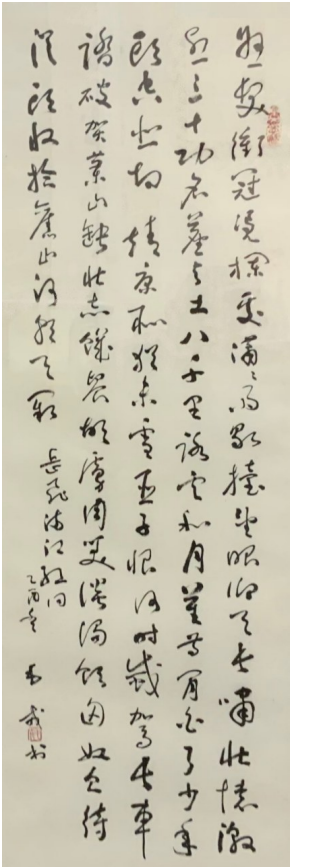 怒髮衝冠憑欄處瀟〻雨歇擡望眼仰天長嘯壯懷激
烈三十功名塵與土八千里路雲和月莫等閒白了少年
頭空悲切靖康恥猶未雪臣子恨何時滅駕長車
踏破賀蘭山缺壯志饑餐胡虜肉笑談渴飲匈奴血待
從頭收拾舊山河朝天闕
岳飛滿江紅詞
乙酉 书